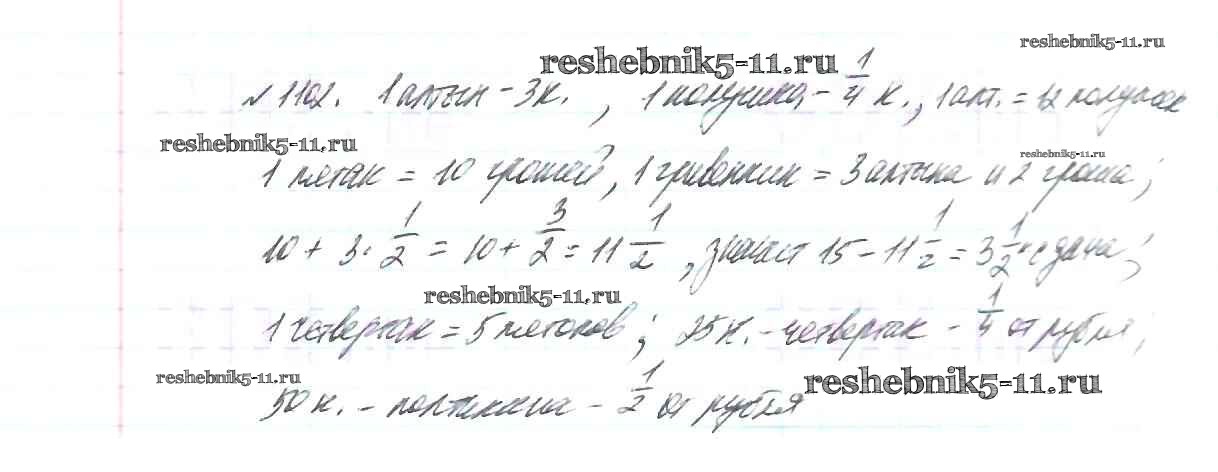 reshebnik5-11.ru
reshebnik5-11.ru
№ 1102. 1 алтын - 3 к., 1 полушка - 1/4 к., 1 алт. = 12 полушек
reshebnik5-11.ru
reshebnik5-11.ru
1 пятак = 10 грошей, 1 гривенник = 3 алтына и 2 гроша;
10 + 3 · 1/2 = 10 + 3/2 = 11 1/2, значит 15 - 11 1/2 = 3 1/2 к сдача;
reshebnik5-11.ru
1 четвертак = 5 пятаков; 25 к. - четвертак - 1/4 от рубля;
reshebnik5-11.ru
reshebnik5-11.ru
50 к. - полтинник - 1/2 от рубля